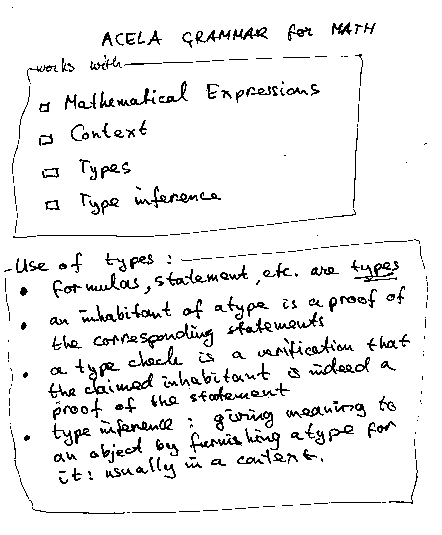 ACELA GRAMMAR for MATH
works with
Mathematical Expressions
Context
Types
Type inference
Use of types :
• formulas, statement, etc. are types
• an inhabitant of a type is a proof of
the corresponding statements
• a type check is a verification that
the claimed inhabitant is indeed a
proof of the statement
• type inference : giving meaning to
an object by furnishing a type for
it : usually in a context.